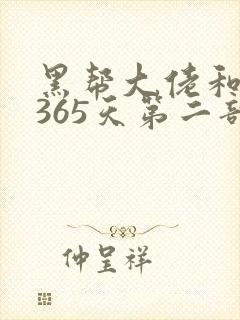 黑帮大佬和
365天第二部
仲呈祥